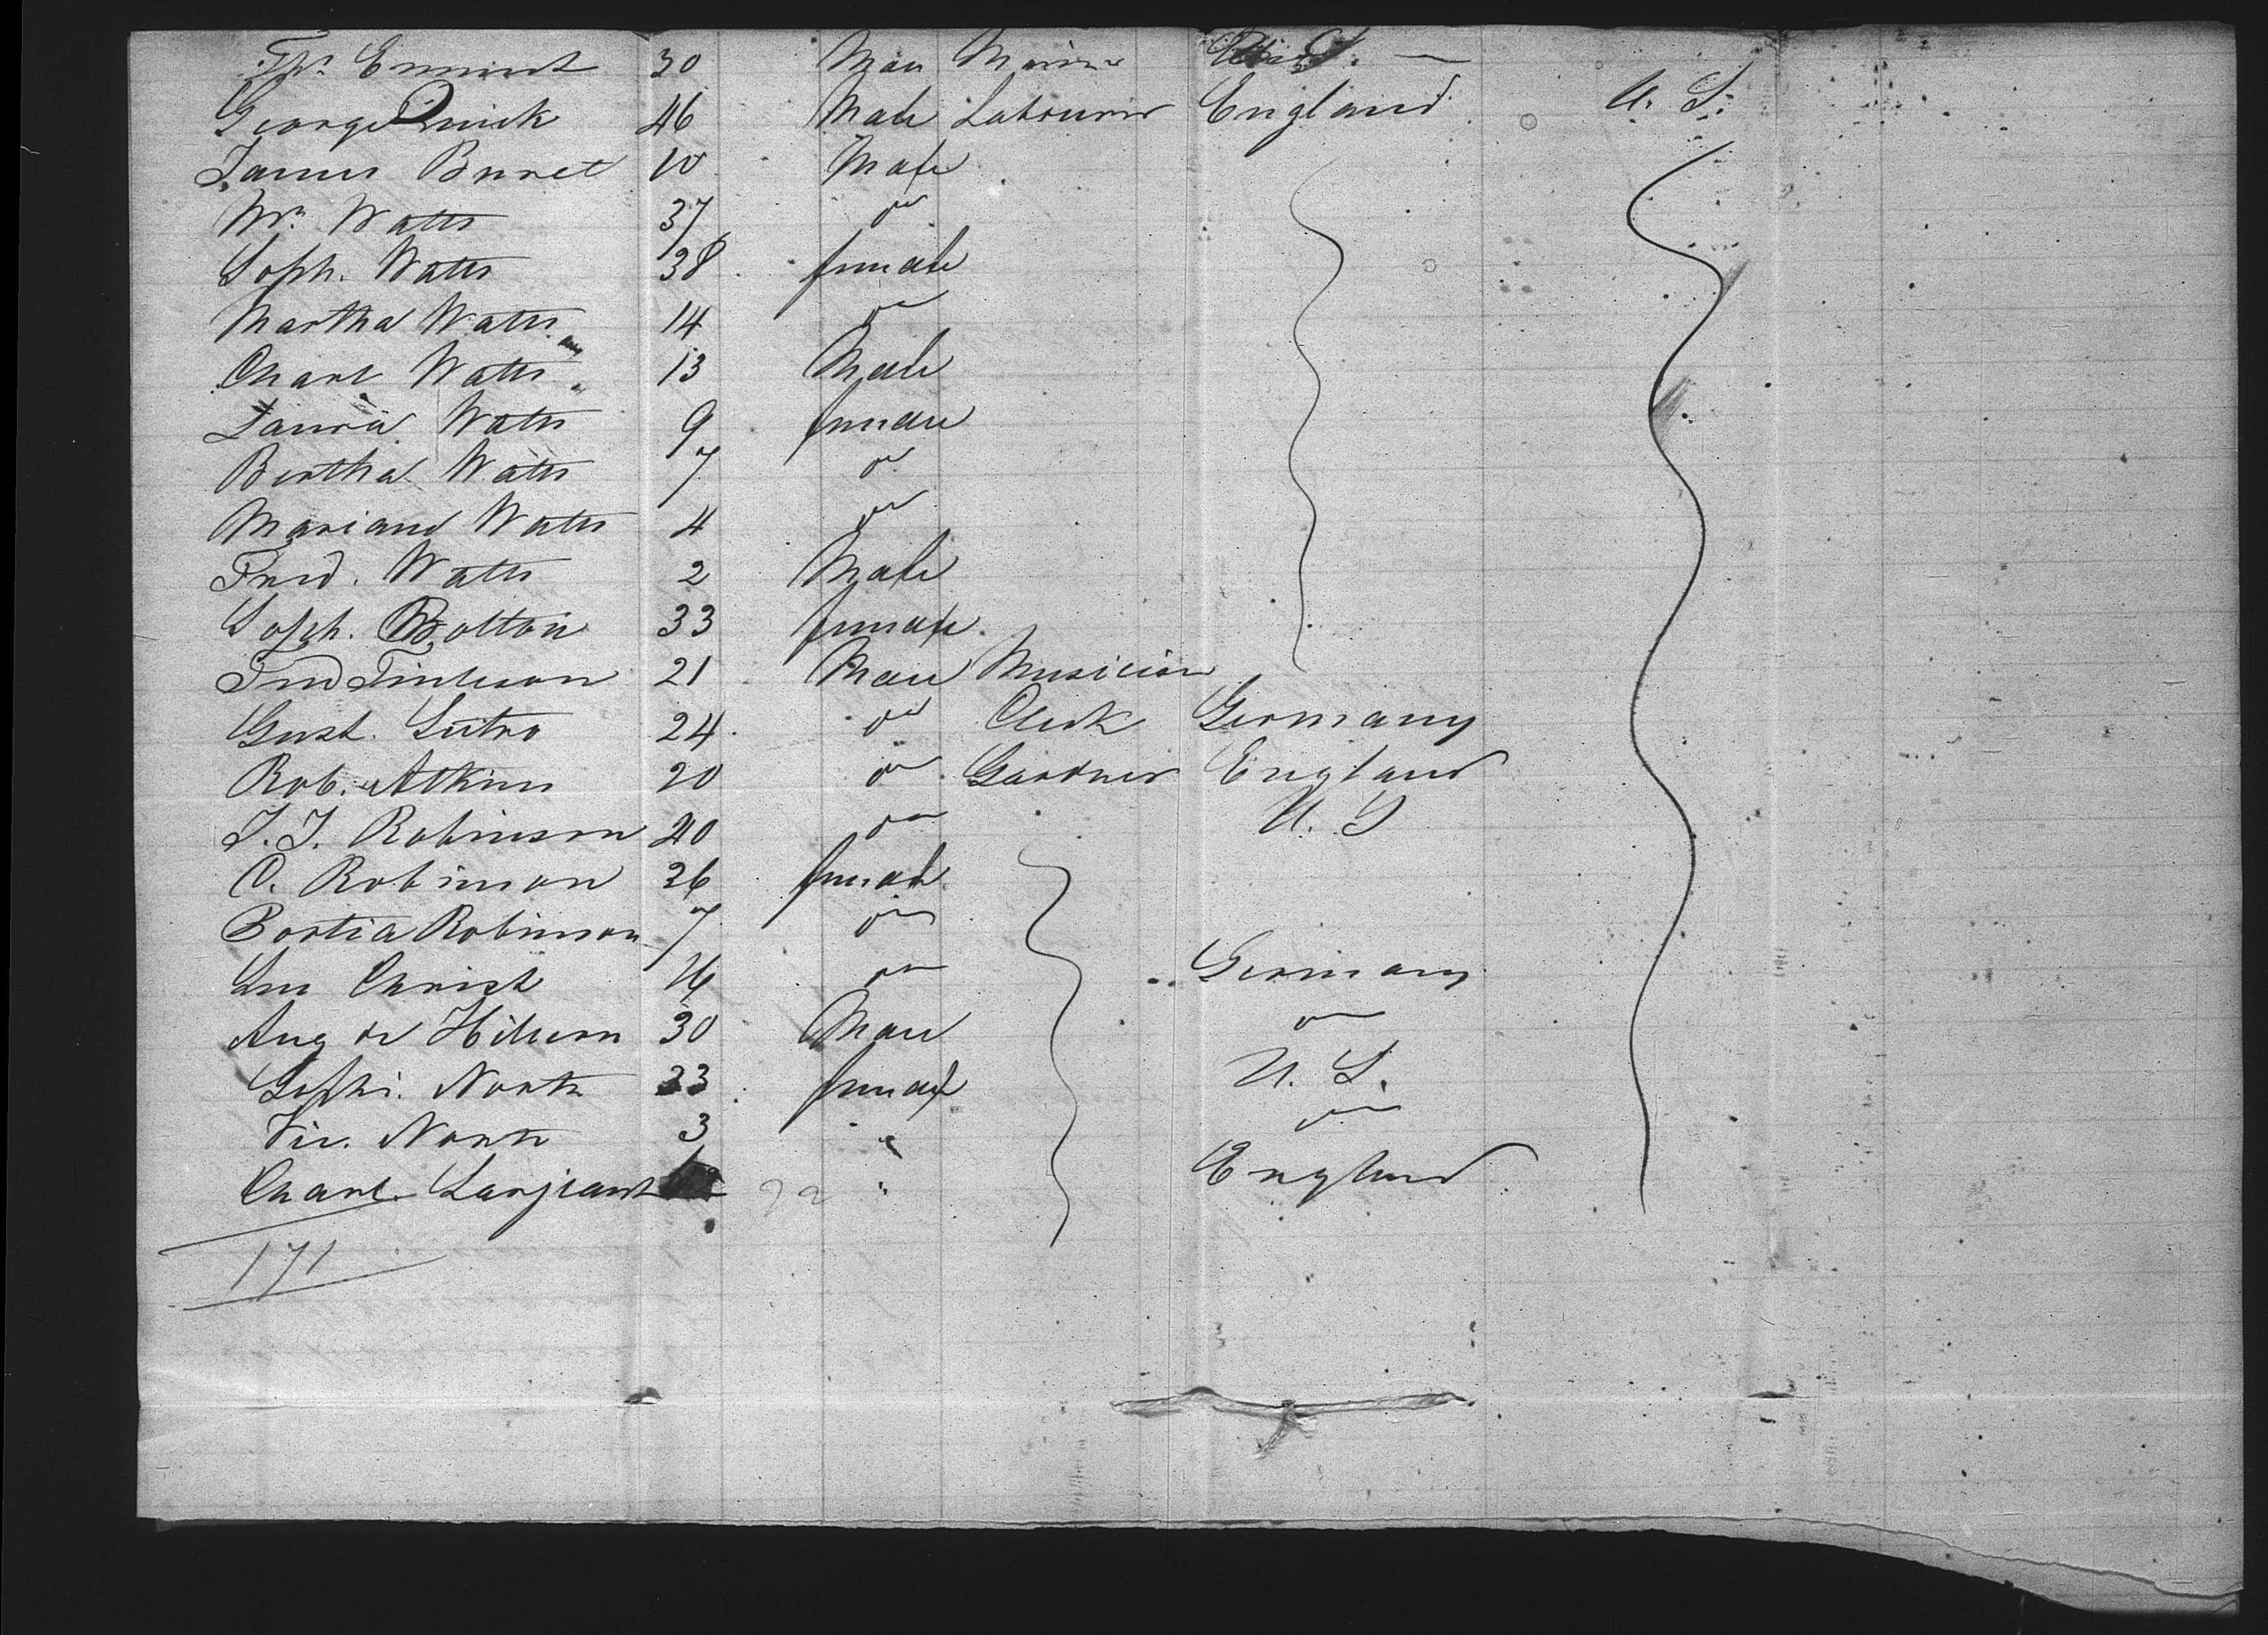 Thos. Emmert 30 Male Miner
George Quick 46 Male Labourer England U. S.
James Burret 10 Male
Wm. Watts 37 do
Soph. Watts 38 female
Martha Watts 14 do
Charl Watts 13 Male
Laura Watts 9 female
Bertha Watts 7 do
Mariand Watts 4 do
Fred. Watts 2 Male
Soph. Bolton 33 female
Fred Tinleson 21 Male Musician
Gust. Sutro 24 do Clerk Germany
Rob. Atkins 20 do Gardner England
J. J. Robinson 40 do U. S
C. Robinson 26 female
Portia Robinson 7 do
Christ 16 do Germany
Aug de Hilleson 30 Male do
Sophi. North 33 female U. S.
Vic. North 3 " do
Charl. Sarjeant " England
171